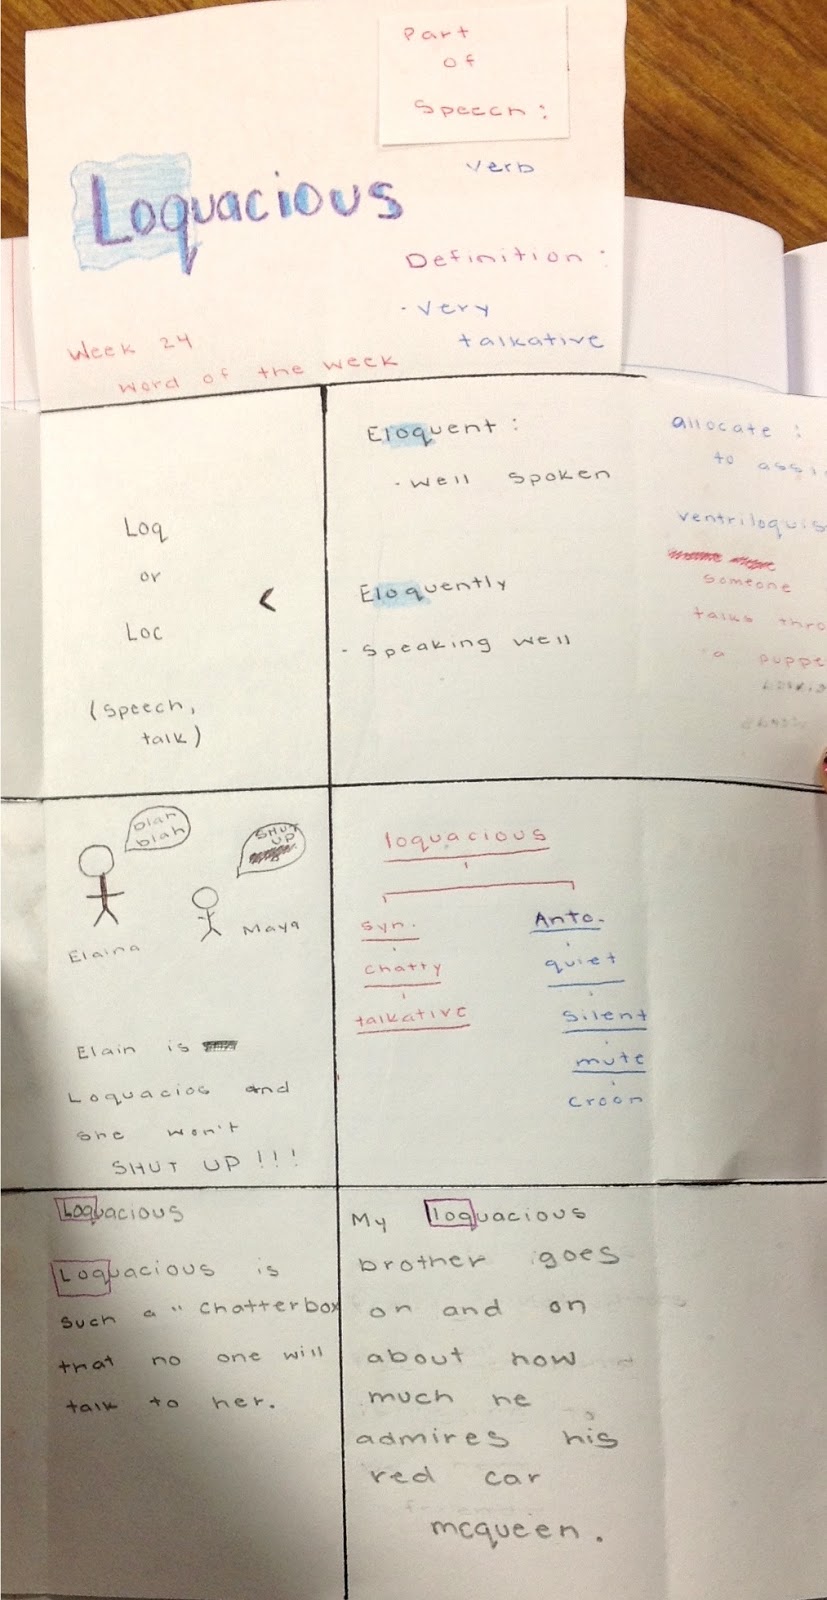 Part
of
Speech:
verb
Loquacious
Definition:
- Very
talkative
Week 24
word of the week
Loq
or
Loc
<
(speech,
talk)
Eloquent:
- well spoken
Eloquently
- Speaking well
allocate:
to assi
ventriloquis
someone
talks thro
a puppe
blah
blah
SHUT
UP
Elaina
Maya
Elain is
Loquacios and
she won't
SHUT UP!!!
loquacious
Syn.
chatty
talkative
Anto.
quiet
silent
mute
croon
Loquacious
Loquacious is
such a " chatterbox
that no one will
talk to her.
My loquacious
brother goes
on and on
about how
much he
admires his
red car
mcqueen.